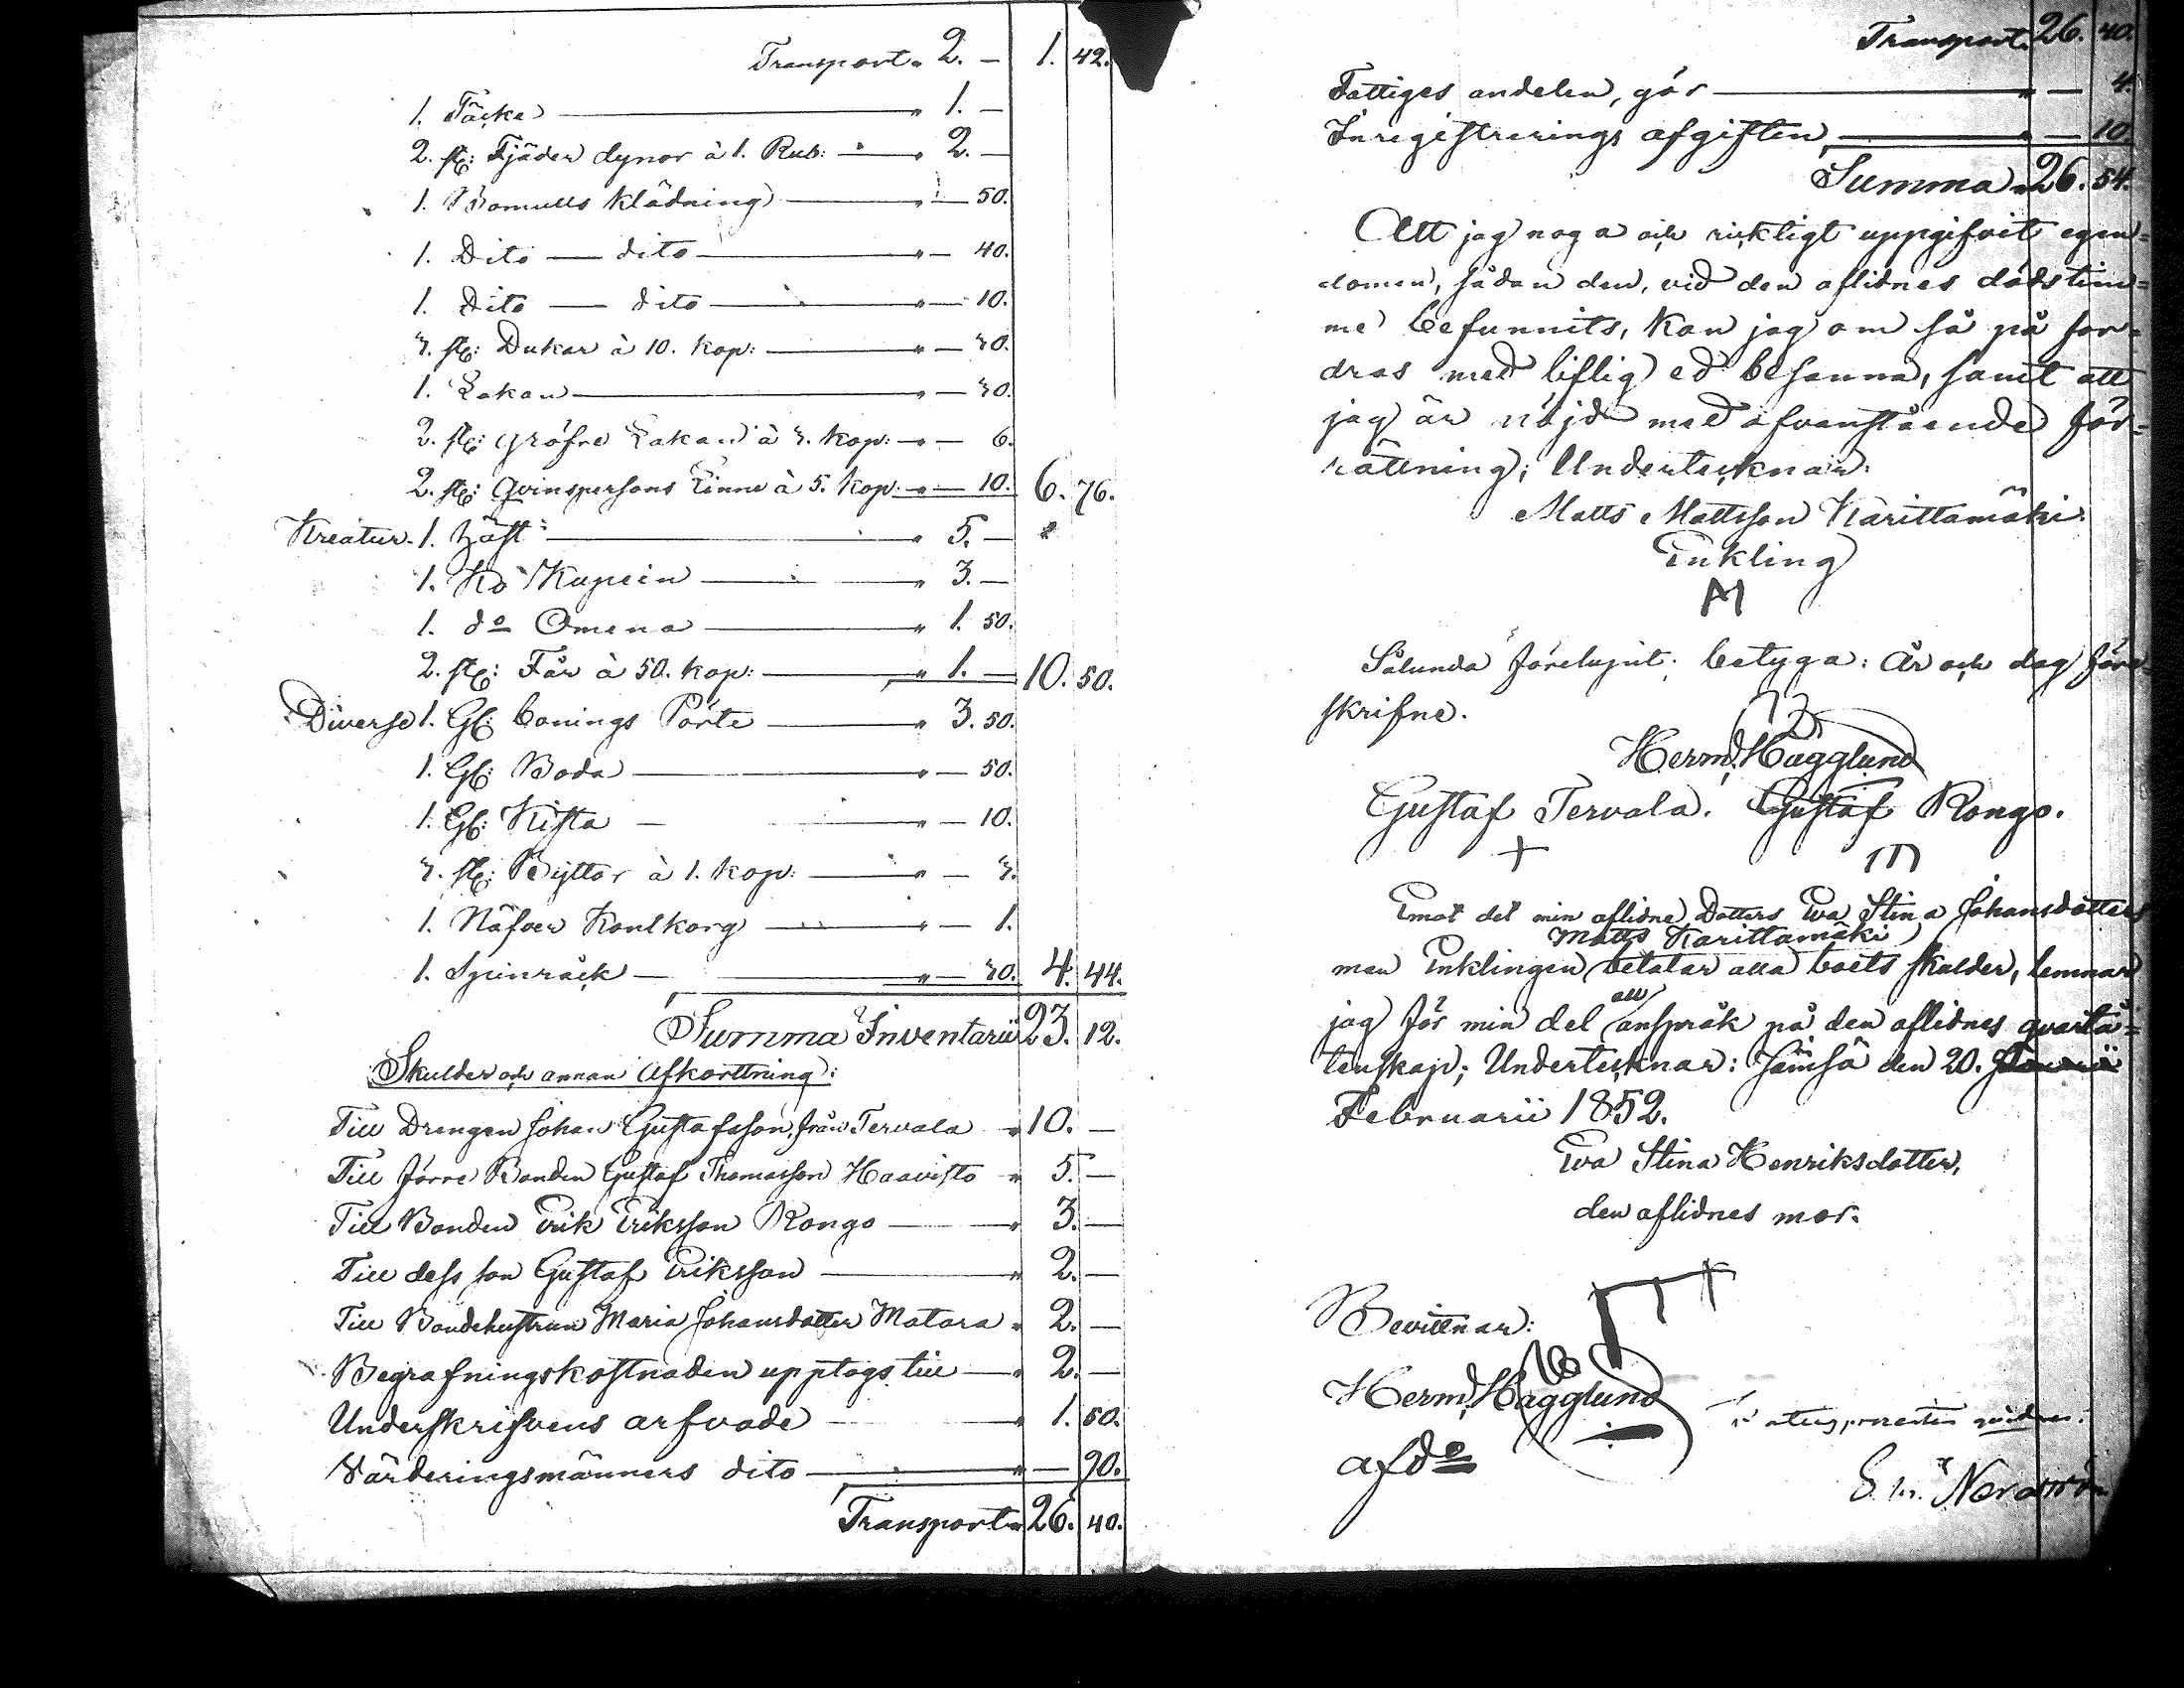 Transport " 2. — 1. 42.
1. Täcke — " 1. —
2. st: Fjäder dynor à 1. Rub: " 2. —
1. Bomulls klädning — " — 50.
1. Dito — dito — " — 40.
1. Dito — dito — " — 10.
3. st: Dukar à 10. kop: — " — 30.
1. Lakan — " — 30.
2. st: gröfre Lakan à 3. kop: " — 6.
2. st: Qvinspersons Linne à 5. kop: " — 10. 6. 76.
Kreatur. 1. Häst — " 5. —
1. Ko Kupein — " 3. —
1. do Omena — " 1. 50.
2. st: Får à 50. kop: — " 1. — 10. 50.
Diverse 1. Gl: bonings Pörte — " 3. 50.
1. Gl: Boda — " — 50.
1. Gl: Kista — " — 10.
3. st: Byttor à 1. kop: — " — 3.
1. Näfver Kontkorg — " — 1.
1. Spinråck — " — 30. 4. 44.
Summa Inventarii 23. 12.
Skulder och annan Afkorttning:
Till Drengen Johan Gustafsson, från Tervala " 10. —
Till förre Bonden Gustaf Thomasson Haavisto " 5. —
Till Bonden Erik Eriksson Rongo — " 3. —
Till dess son Gustaf Eriksson — " 2. —
Till Bondehustrun Maria Johansdotter Matara " 2. —
Begrafningskostnaden upptogs till — " 2. —
Underskrifvens arfvode — " 1. 50.
Värderingsmänners dito — " — 90.
Transport " 26. 40.
Transport " 26. 40.
Fattiges andelen, gör — " — 4.
Inregistrerings afgiften — " — 10.
Summa " 26. 54.
Att jag noga och ricktigt uppgifvit egen=
domen, sådan den, vid den aflidnes dödstim=
me befunnits, kan jag om så på for=
dras med liflig ed besanna, samt att
jag är nöjd med ofvanstående för=
rättning; Undertecknar.
Matts Mattsson Karittamäki
Enkling
M
Sålunda förelupit; betyga: År och dag före
skrifne.
Herm. Hägglund
Gustaf Tervala. Gustaf Rongo.
Emot det min aflidne Dotters Eva Stina Johansdotters
Matts Karittamäki
man Enklingen betalar alla boets skulder, lemnar
all
jag för min del anspråk på den aflidnes qvarlå=
tenskap; Undertecknar: Jämsä den 20.
Februarii 1852.
Eva Stina Henriksdotter,
den aflidnes mor.
Bevittnar:
Herm. Hägglund